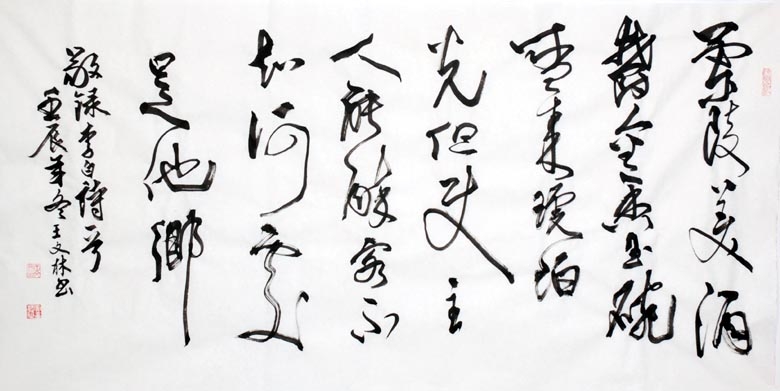 蘭陵美酒
鬱金香玉碗
盛来琥珀
光但使主
人能醉客不
知何處
是他鄉
敬録李白詩一首
壬辰年冬王文林书